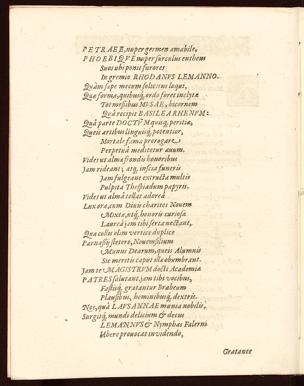 PETRAEE, nuper germen amabile,
PHOEBIQVE nuper surculus entheus
Suos ubi ponit furores
In gremio RHODANVS LEMANNO.
Quàm sæpe mecum solicitus loquor,
Qua forma, quibusq; ordo foret inclyte
Tot messibus MVSAE, bicornem
Quà recipit BASILEA RHENVM:
Quâ parte DOCTVMquisq, peritia,
Quæis artibus linguisq; potentior,
Mortale fama prorogare
Perpetuâ meditetur ævum.
Videt ut alma frondis honoribus
Jam rideant; atq, inscia funeris
Jam fulgeant extructa multis
Pulpita Thespiadum papyris.
Videt ut almâ tollat adoreâ
Luxora, cum Divis charites Novem
Mixta, utq; honoris curiosa
Laurea jam tibi serta nectant,
Qua collis olim vertice duplice
Parnassi stetere, Novensilium
Munus Dearum, queis Alumnis
Sic meritis caput illa obumbrant.
Jam te MAGISTRVM docti Academiæ
PATRES salutant, jam tibi vocibus,
Fastisq, gratantur Brabeum
Plausibus, hominibusq, dextris.
Nos, quà LAVSANNAE mania nobilis,
Surgitq; mundi delicium & decus
LEMANNVS & Nymphas Falerni
Ubere provocat invidendo,
Gratante